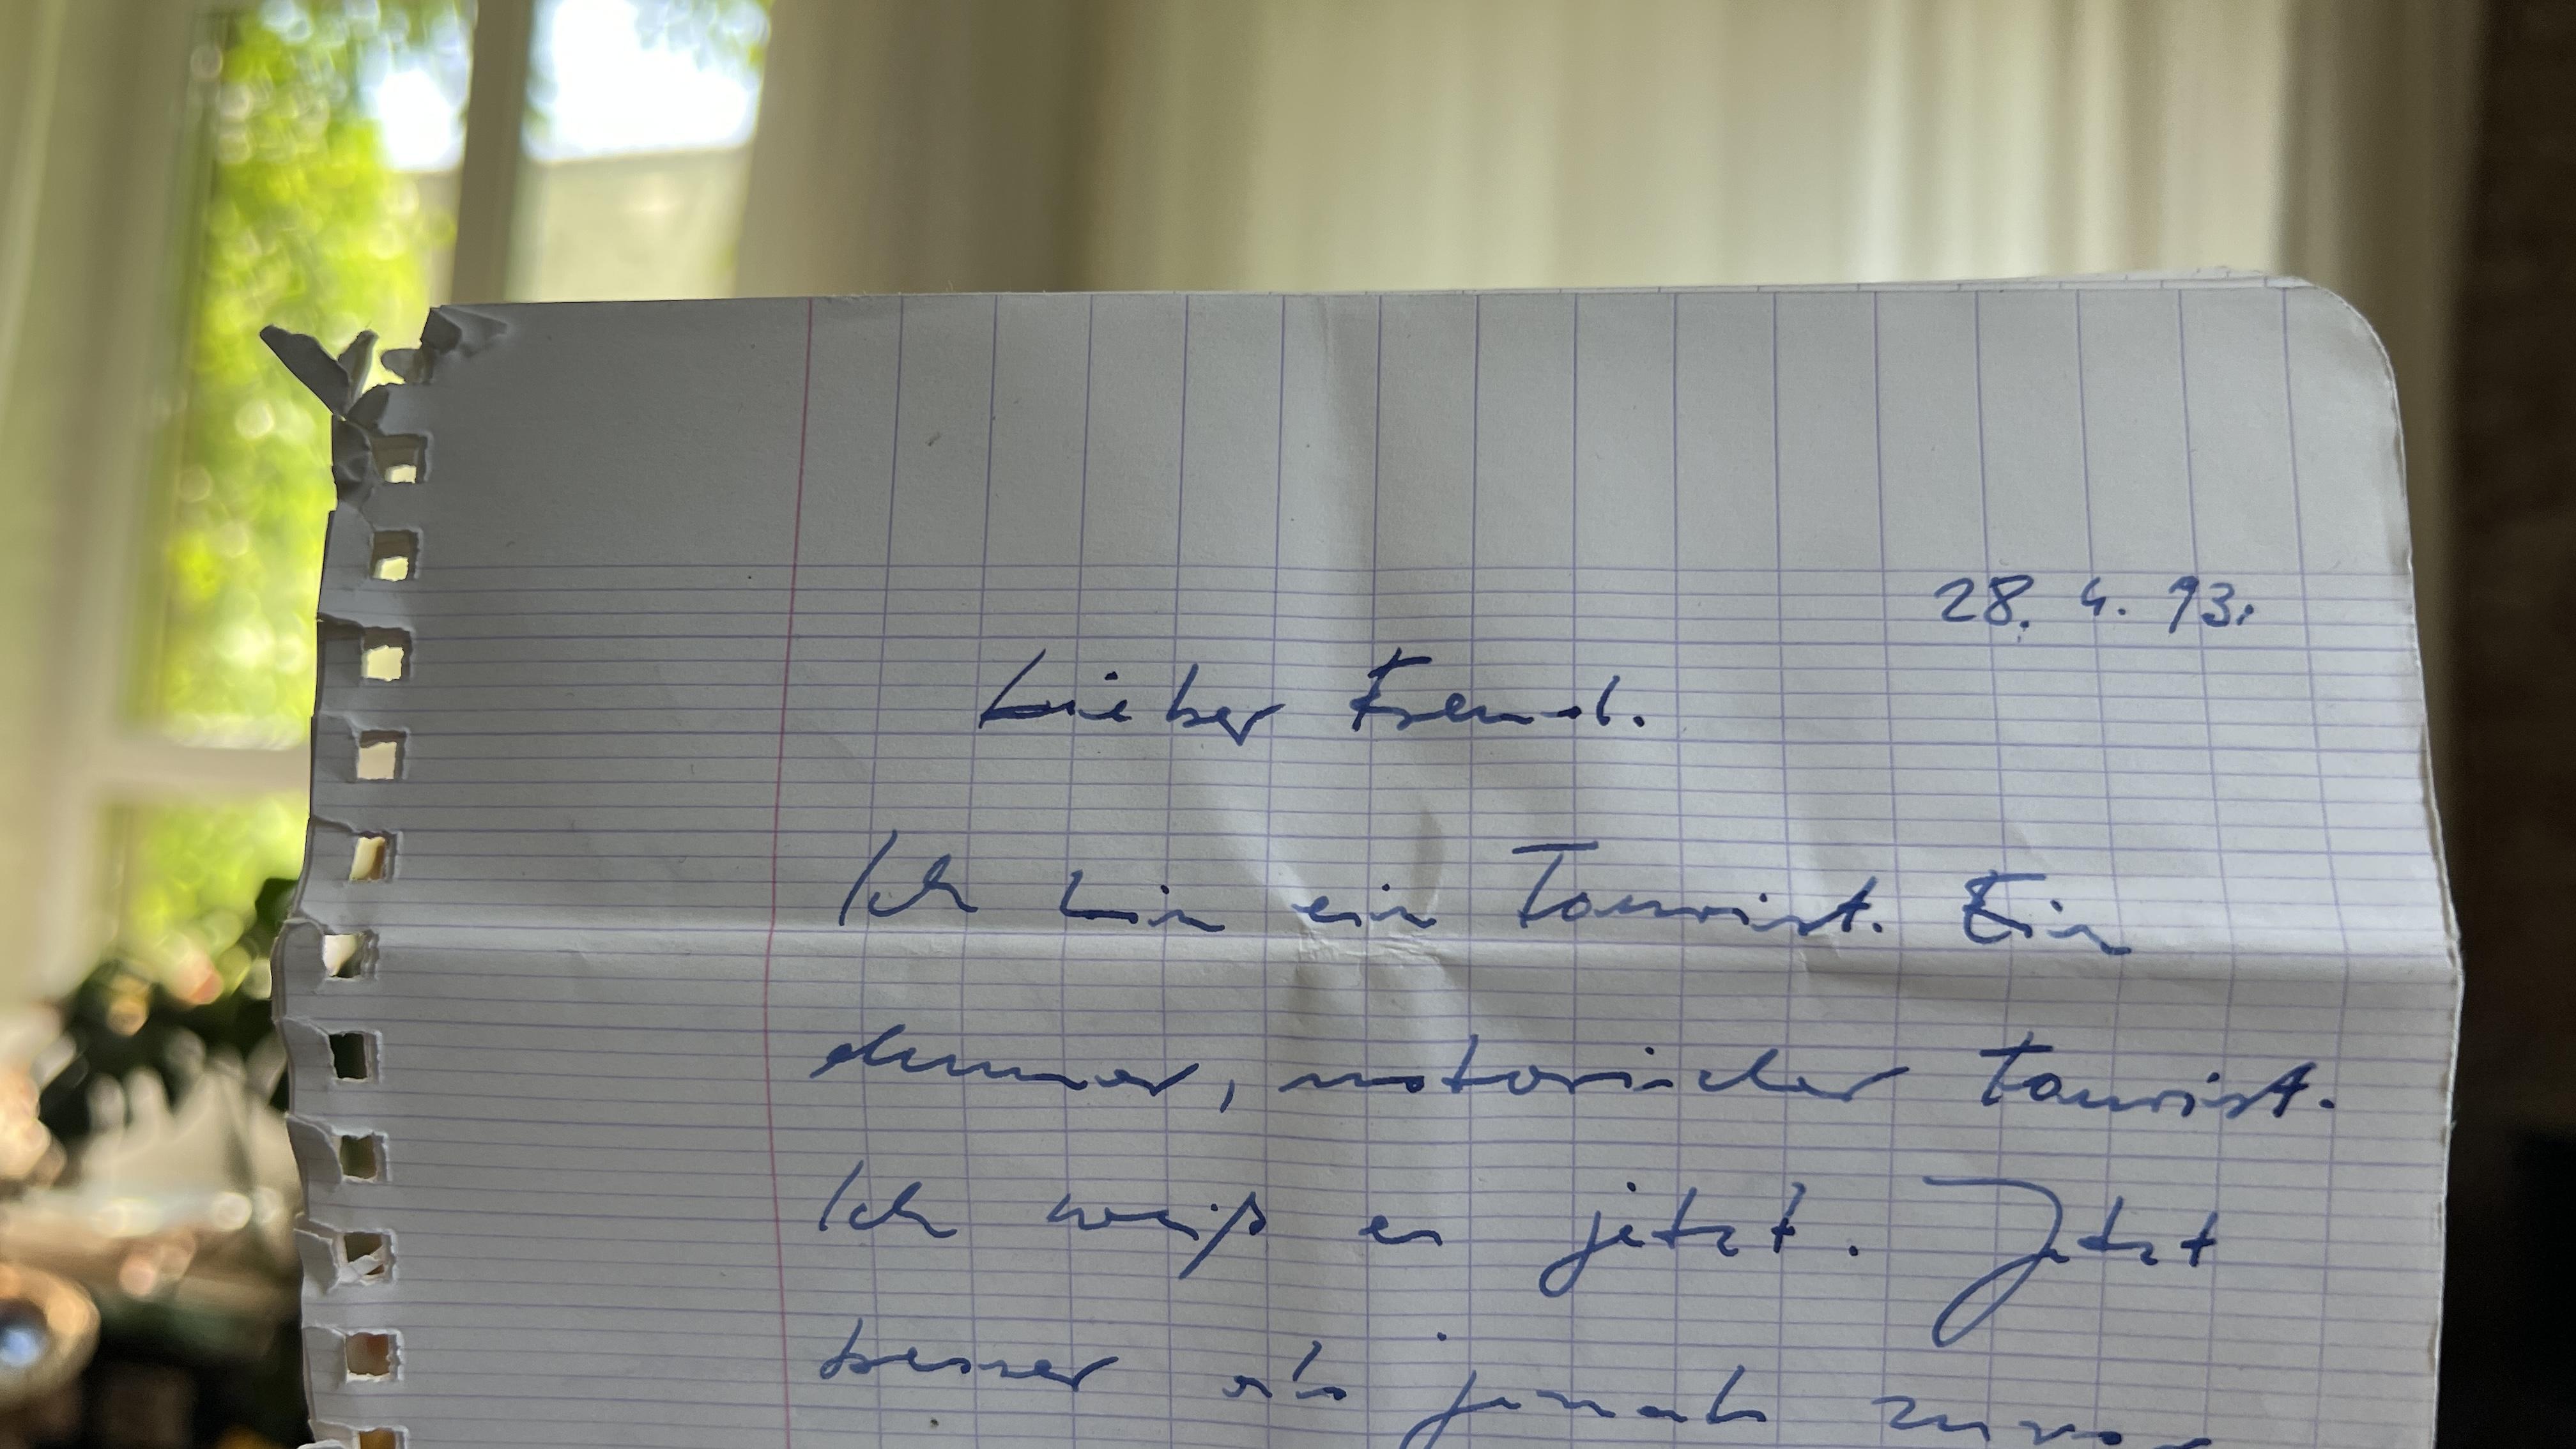 28. 4. 93.
Lieber Freund.
Ich bin ein Tourist. Ein
dummer, notorischer Tourist.
Ich weiß es jetzt. Jetzt
besser als jemals zuvor